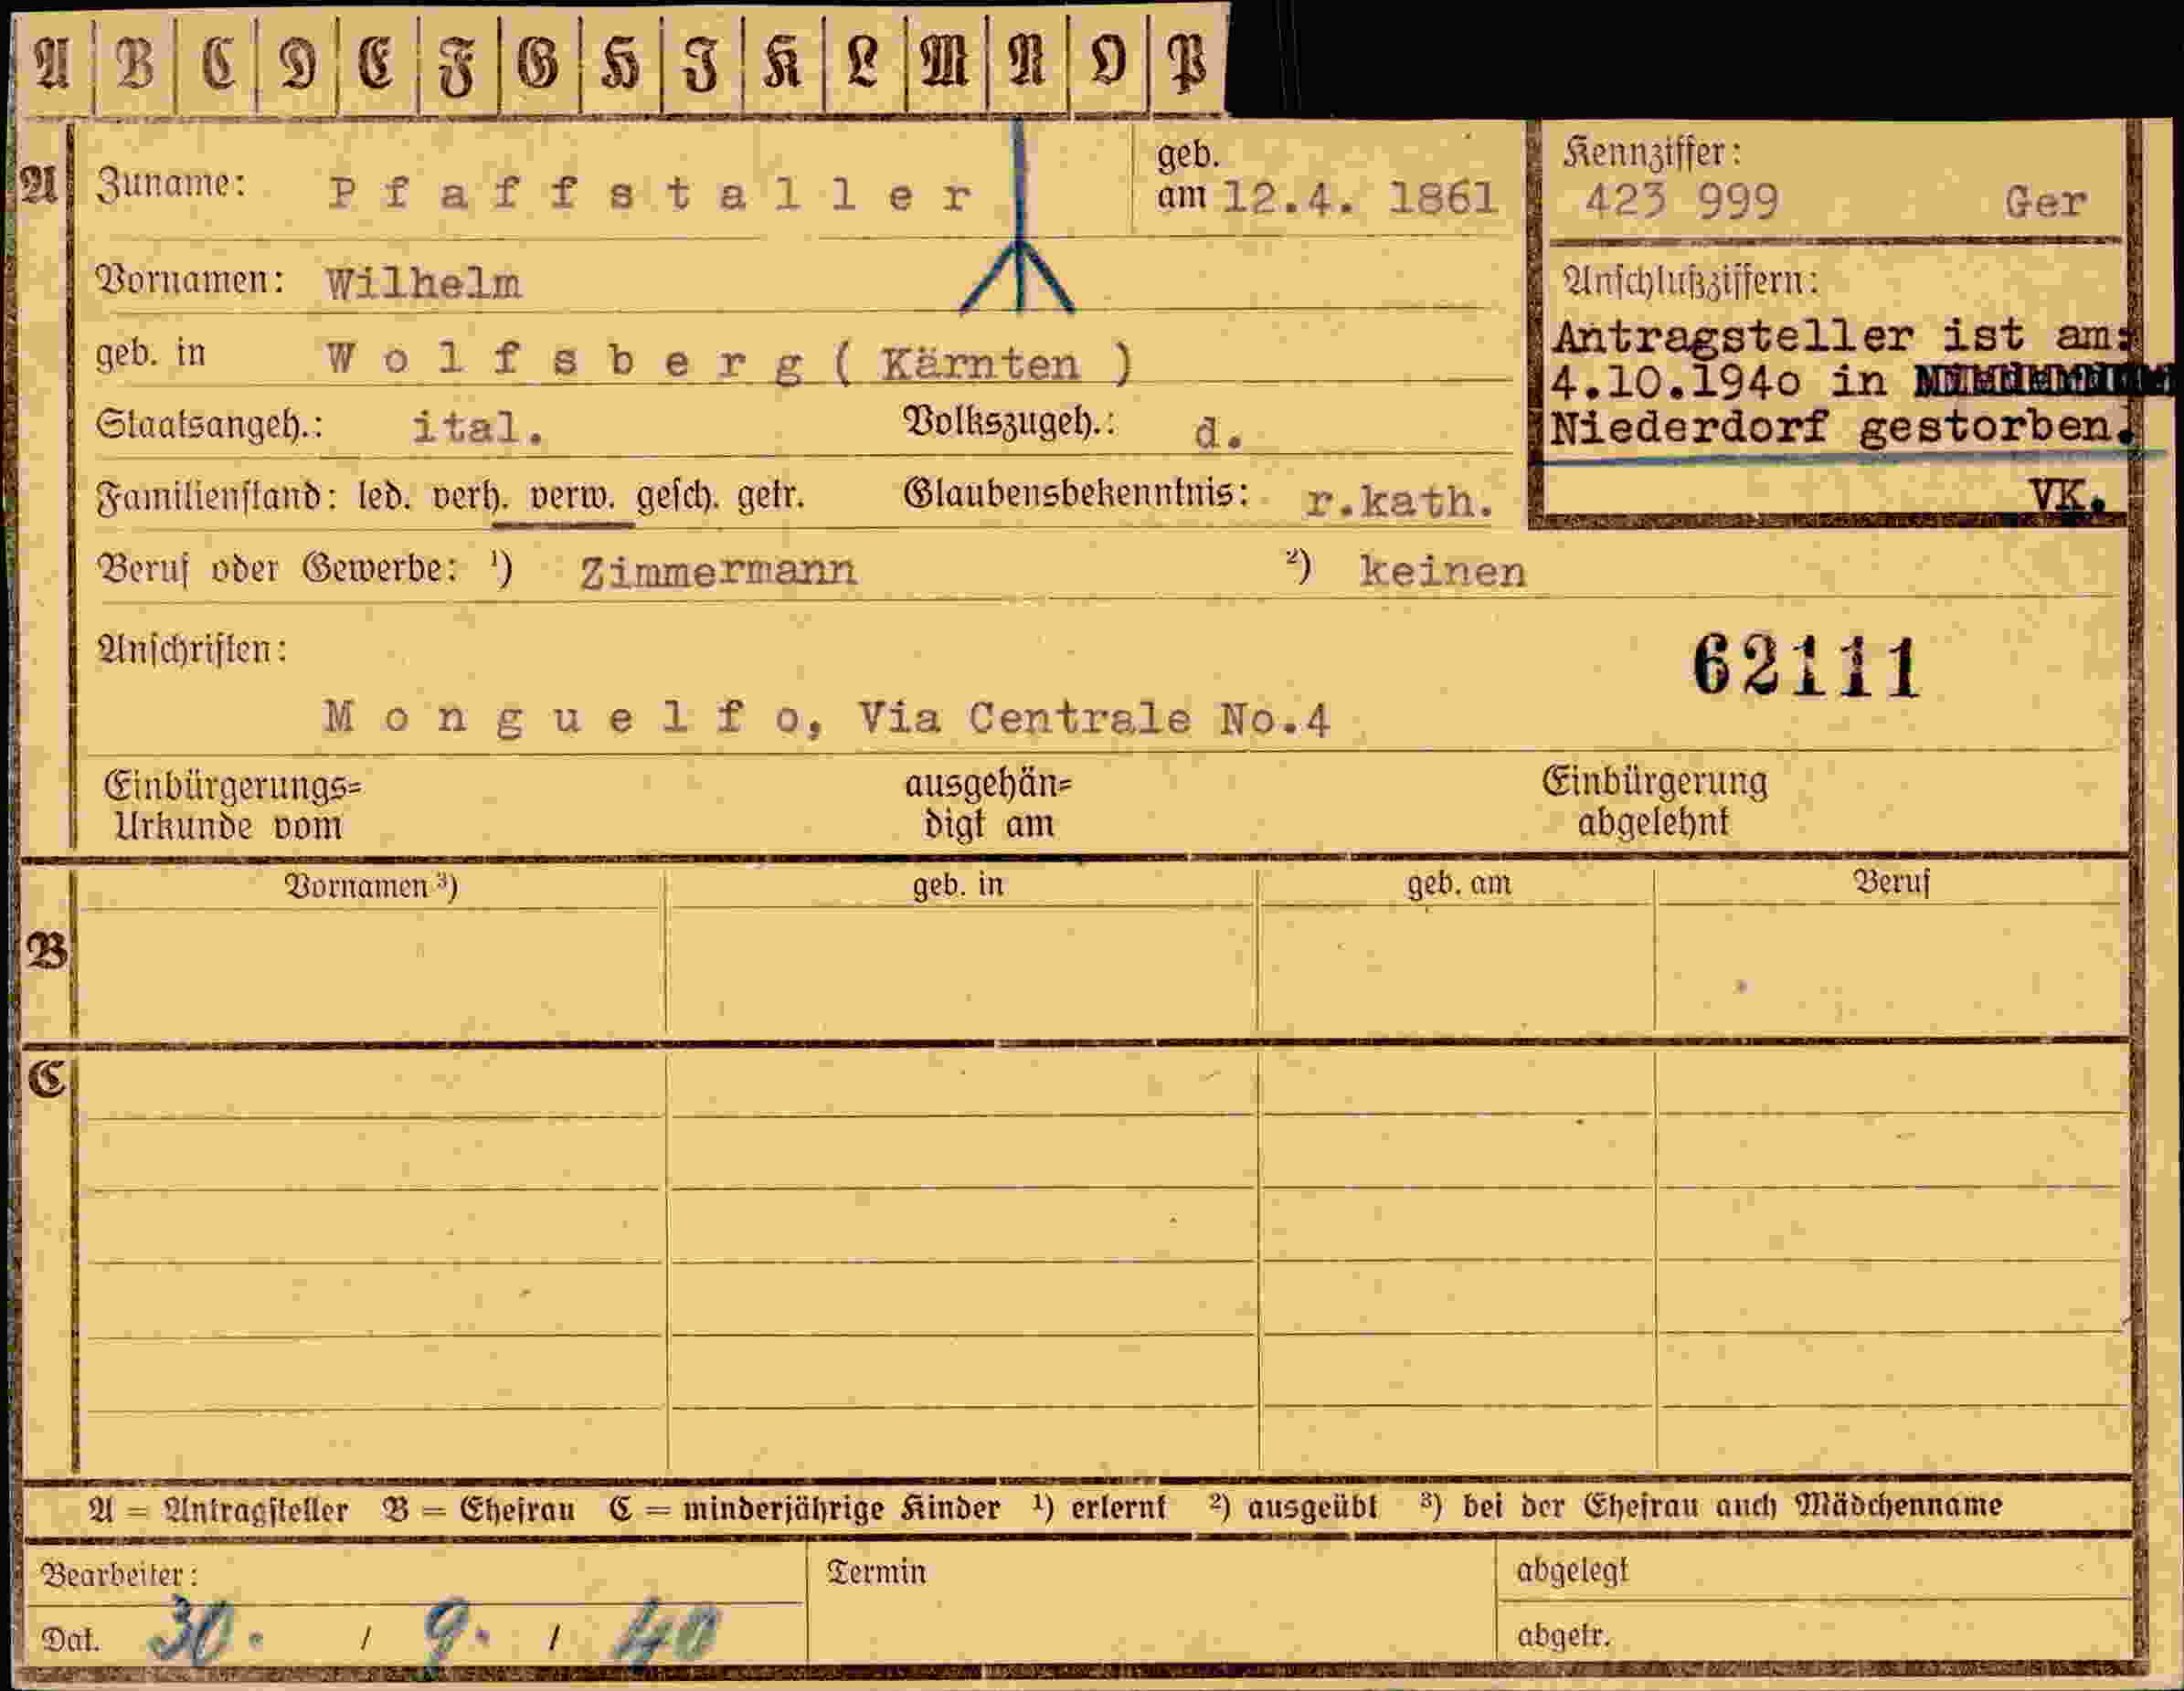 A B C D E F G H I K L M N O P
A Zuname: Pfaffstaller geb. am 12.4. 1861
Kennziffer:
423 999 Ger
Vornamen: Wilhelm
geb. in Wolfsberg ( Kärnten )
Staatsangeh.: ital. Volkszugeh.: d.
Familienstand: led. verh. verw. gesch. getr. Glaubensbekenntnis: r.kath.
Anschlußziffern:
Antragsteller ist am:
4.10.1940 in
Niederdorf gestorben.
VK.
Beruf oder Gewerbe: ¹) Zimmermann ²) keinen
Anschriften:
62111
Monguelfo, Via Centrale No.4
Einbürgerungs= ausgehän= Einbürgerung
Urkunde vom digt am abgelehnt
Vornamen ³) geb. in geb. am Beruf
B
C
A = Antragsteller B = Ehefrau C = minderjährige Kinder ¹) erlernt ²) ausgeübt ³) bei der Ehefrau auch Mädchenname
Bearbeiter: Termin abgelegt
Dat. 30. / 9. / 40 abgetr.